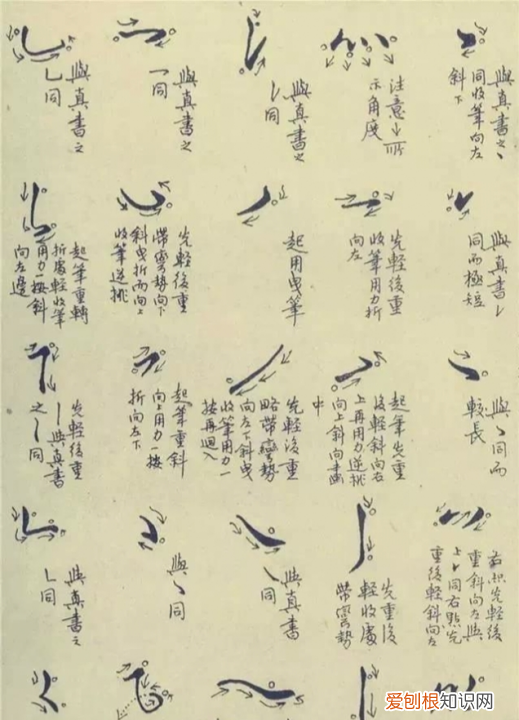 與真書之丶
同收筆向左
斜下
注意↓所
示角度
與真書之
丿同
與真書之
一同
與真書之
乚同
與真書㇀
同而極短
先輕後重
收筆用力折
向左
起用曳筆
先輕後重
帶彎勢向下
斜曳折而向上
收筆逆挑
起筆重轉
折處輕收筆
角用力按斜
向左邊
與丶同而
較長
起筆先重
後輕斜向右
上再用力逆挑
向上斜向畫
中
先輕後重
略帶彎勢
向左下斜曳
收筆用力一
按再迴入
起筆重斜
向上用力一按
折向左下
先輕後重
亅與真書
之亅同
前點先輕後
重斜向左與
上㇀同右點先
重後輕斜向左
先重後
輕收處
帶彎勢
與真書
㇏同
與丶同
與真書之
乚同
爱刨根知识网